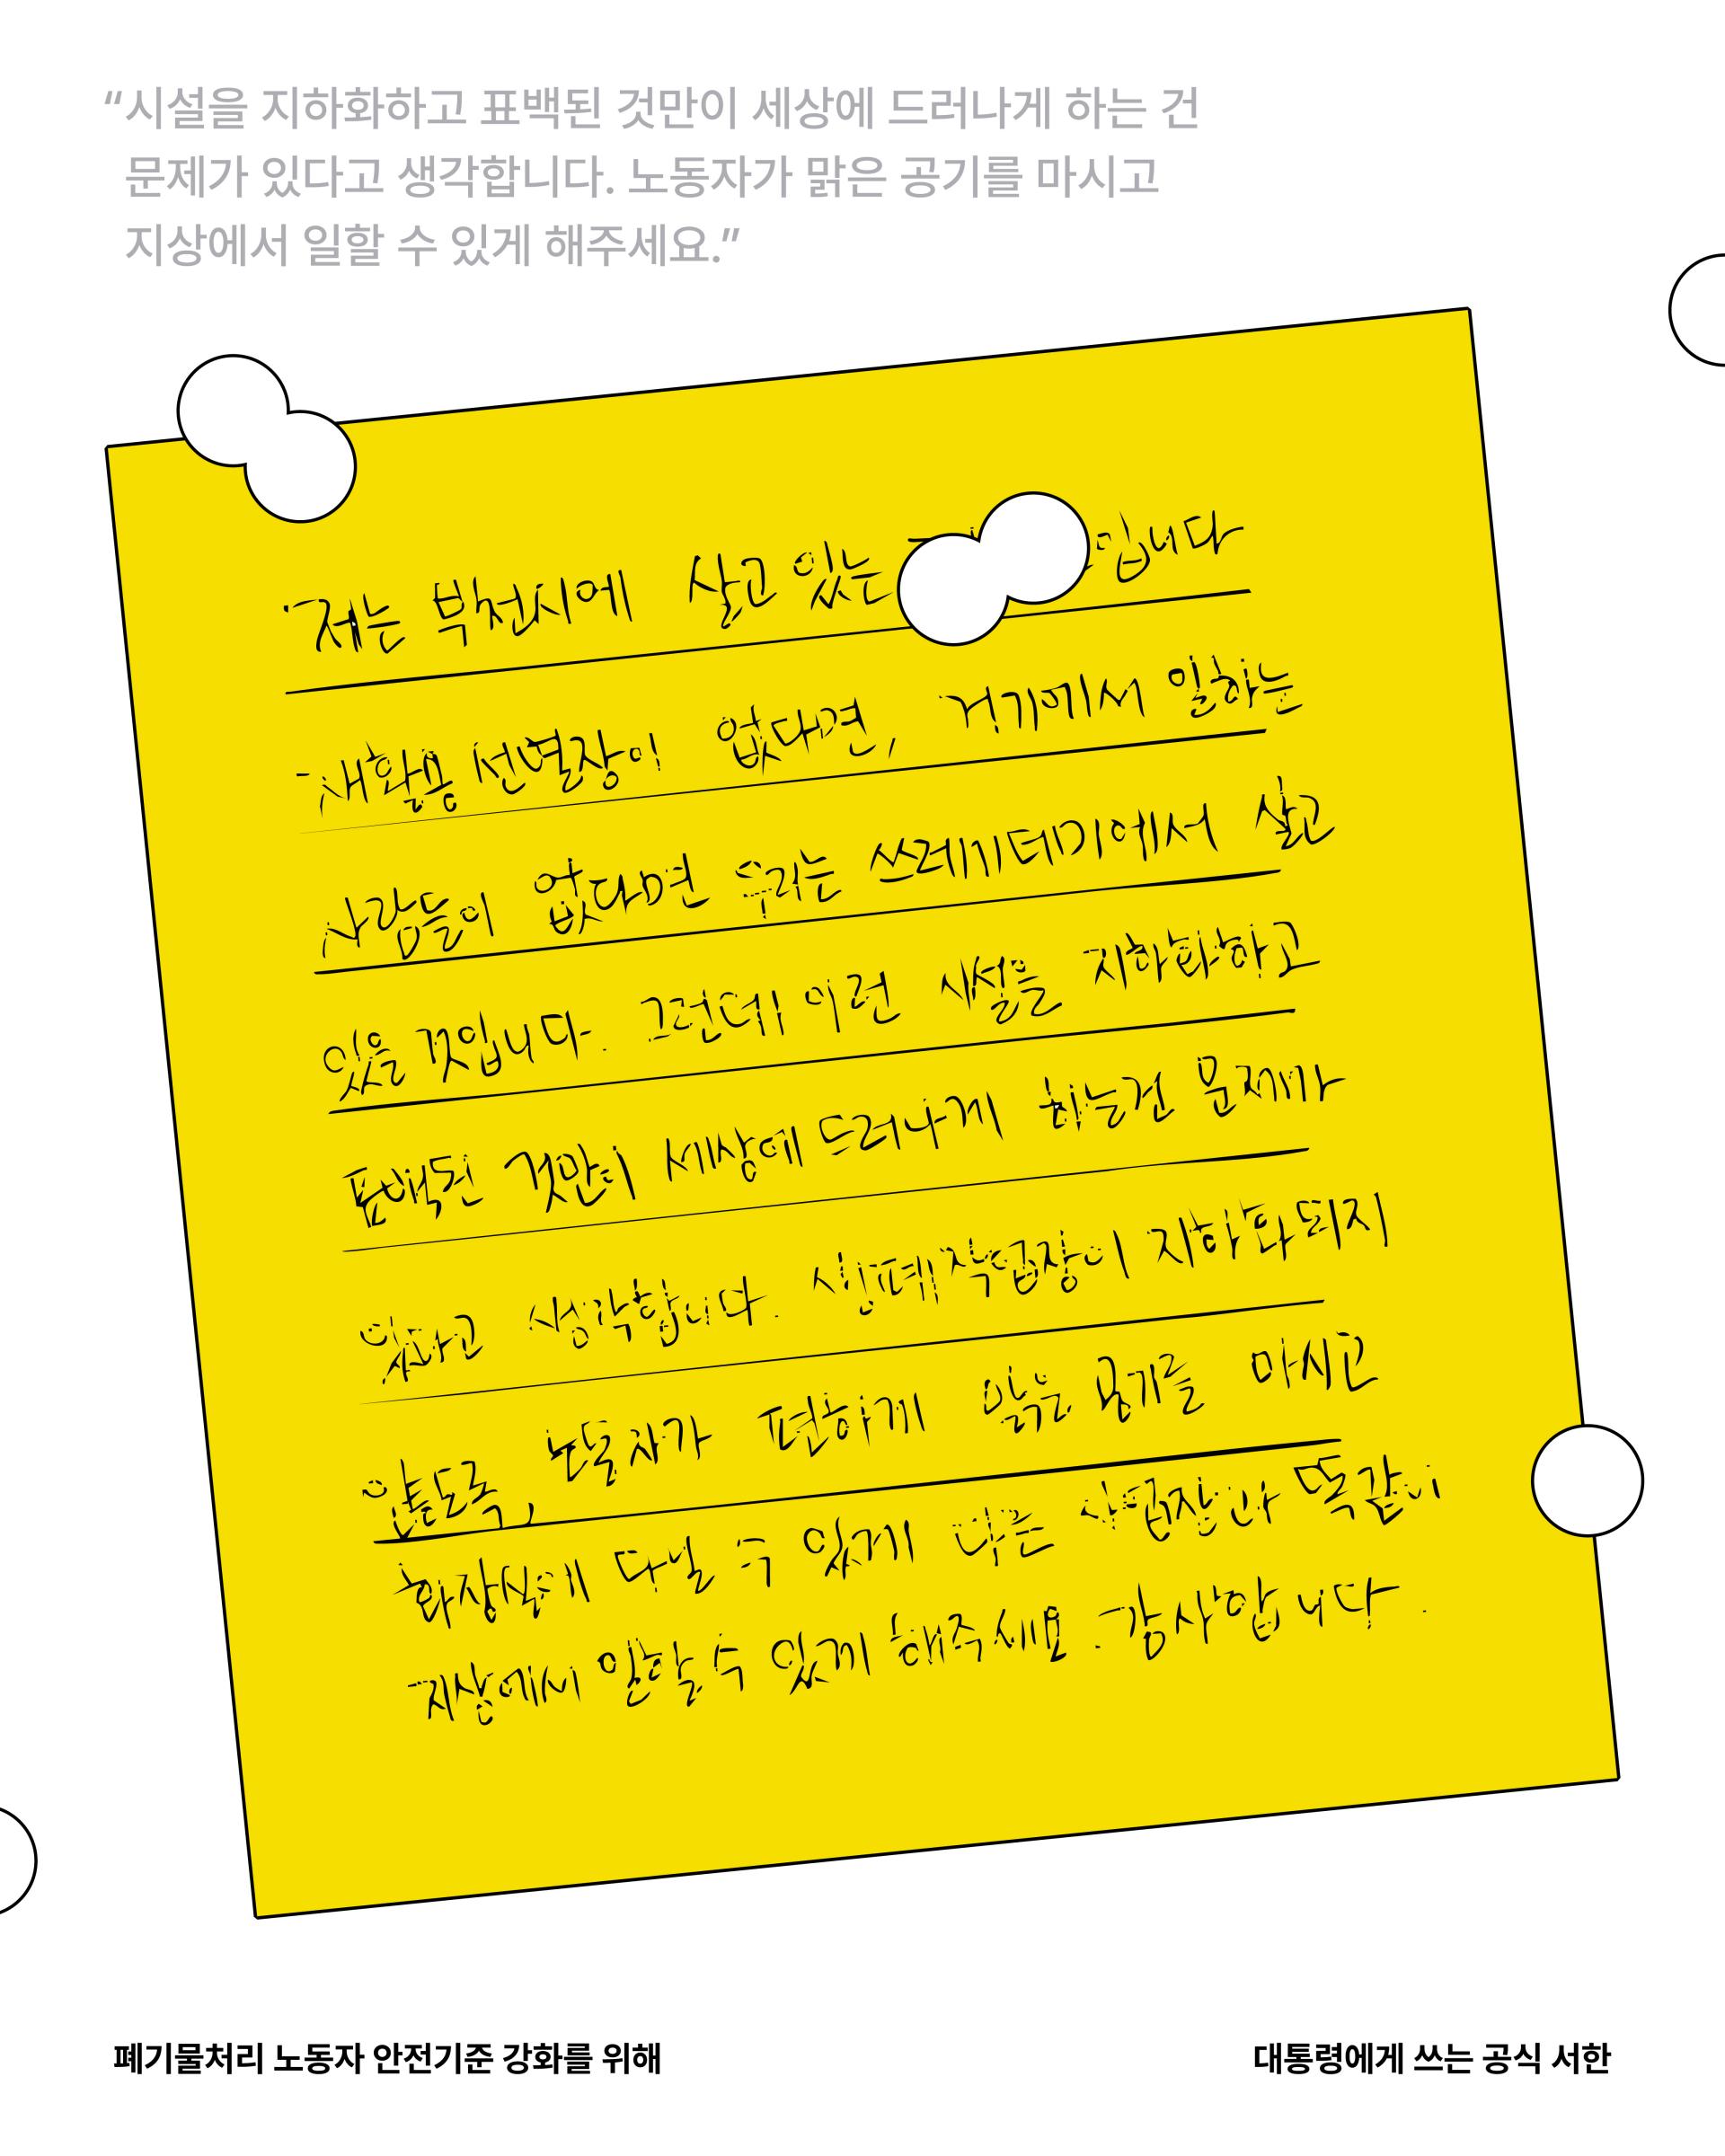 “시설을 지하화하고 표백된 것만이 세상에 드러나게 하는 건
문제가 있다고 생각합니다. 노동자가 맑은 공기를 마시고
지상에서 일할 수 있게 해주세요.”
저는 부천시에 살고 있는 입니다
재활용 선별장이 없다면, 거기에서 일하는
사람들이 없다면 우리는 쓰레기더미에서 살고
있을 것입니다. 그런데 이런 시설을 지하화하고
표백된 것만이 세상에 드러나게 하는건 문제가
있다고 생각합니다. 심폐 작업장이 지하화되지
않도록, 노동자가 맑은 공기를 마시고
화장실에 다닐 수 있게 나은 작업환경이
지상에서 일할 수 있게 해주세요. 감사합니다.
폐기물처리 노동자 안전기준 강화를 위해
대통령에게 쓰는 공식 서한